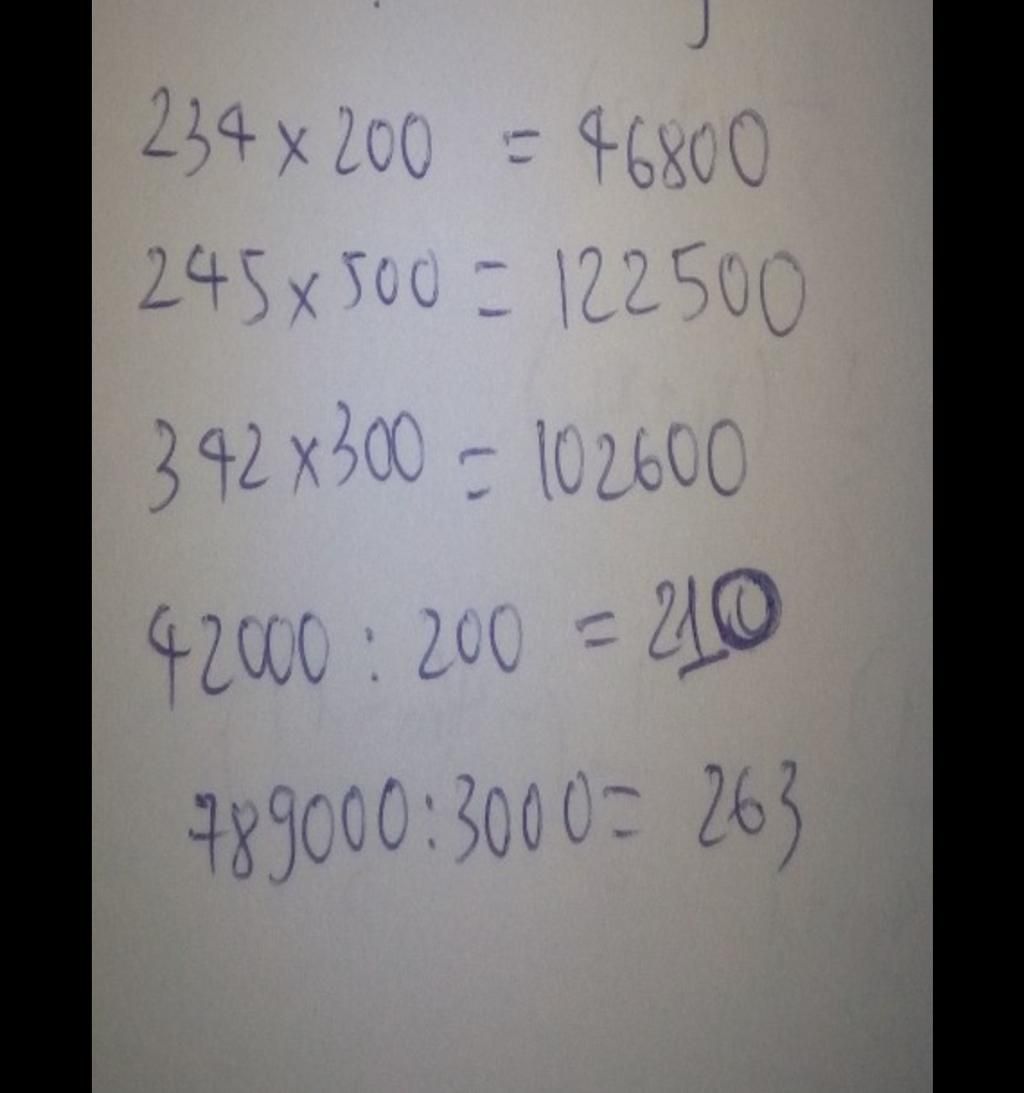 234 x 200 = 46800
245 x 500 = 122500
342 x 300 = 102600
42000 : 200 = 210
789000 : 3000 = 263